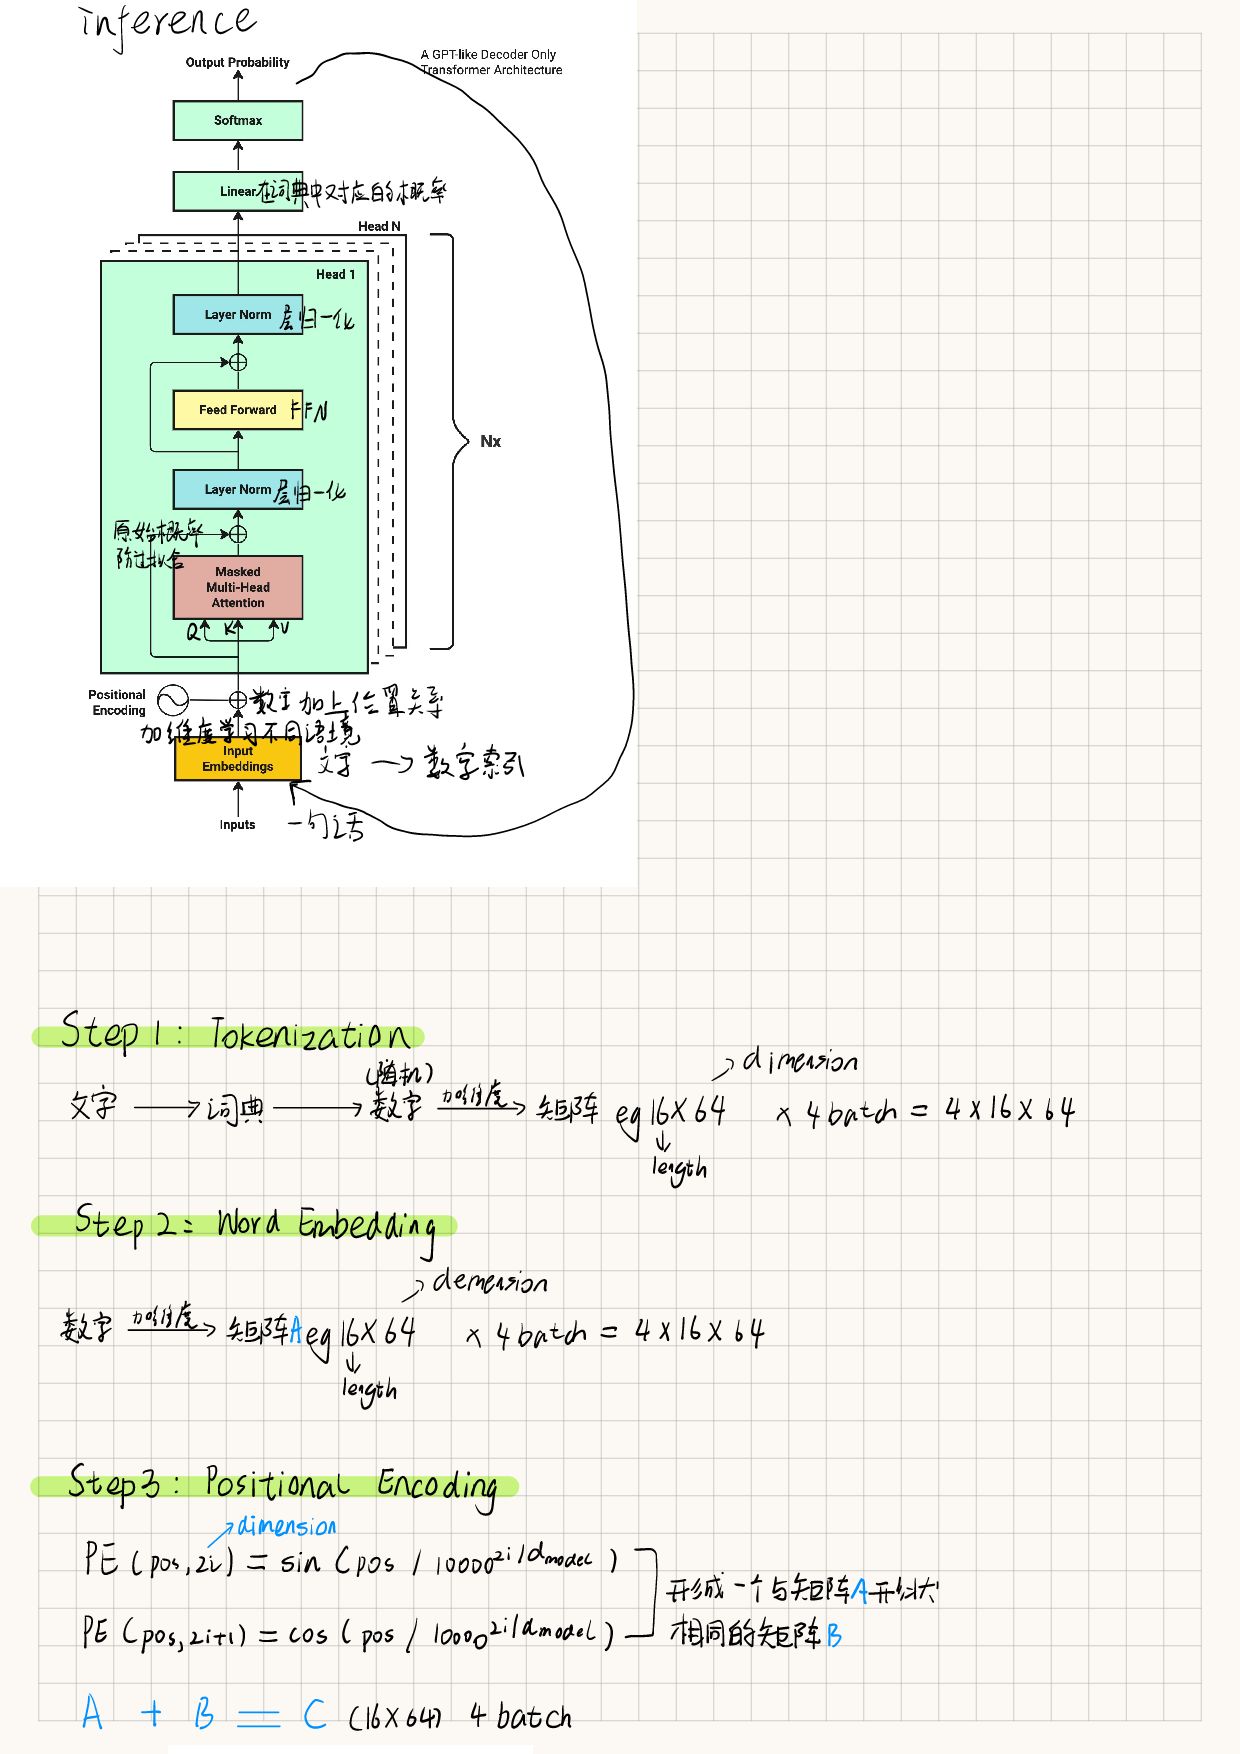 inference
A GPT-like Decoder Only
Transformer Architecture
Output Probability
Softmax
Linear 在词典中对应的概率
Head N
Head 1
Layer Norm 层归一化
Feed Forward FFN
Nx
Layer Norm 层归一化
原始概率
防过拟合
Masked
Multi-Head
Attention
Q K V
Positional
Encoding
数字加上位置关系
加维度学习不同语境
Input
Embeddings
文字 → 数字索引
Inputs
一句话
Step 1: Tokenization
(随机)
dimension
文字 → 词典 → 数字 加维度 → 矩阵 eg 16×64 × 4 batch = 4×16×64
length
Step 2: Word Embedding
demension
数字 加维度 → 矩阵A eg 16×64 × 4 batch = 4×16×64
length
Step 3: Positional Encoding
dimension
PE (pos, 2i) = sin (pos / 10000^2i/dmodel)
形成一个与矩阵A形状
相同的矩阵B
PE (pos, 2i+1) = cos (pos / 10000^2i/dmodel)
A + B = C (16×64) 4 batch